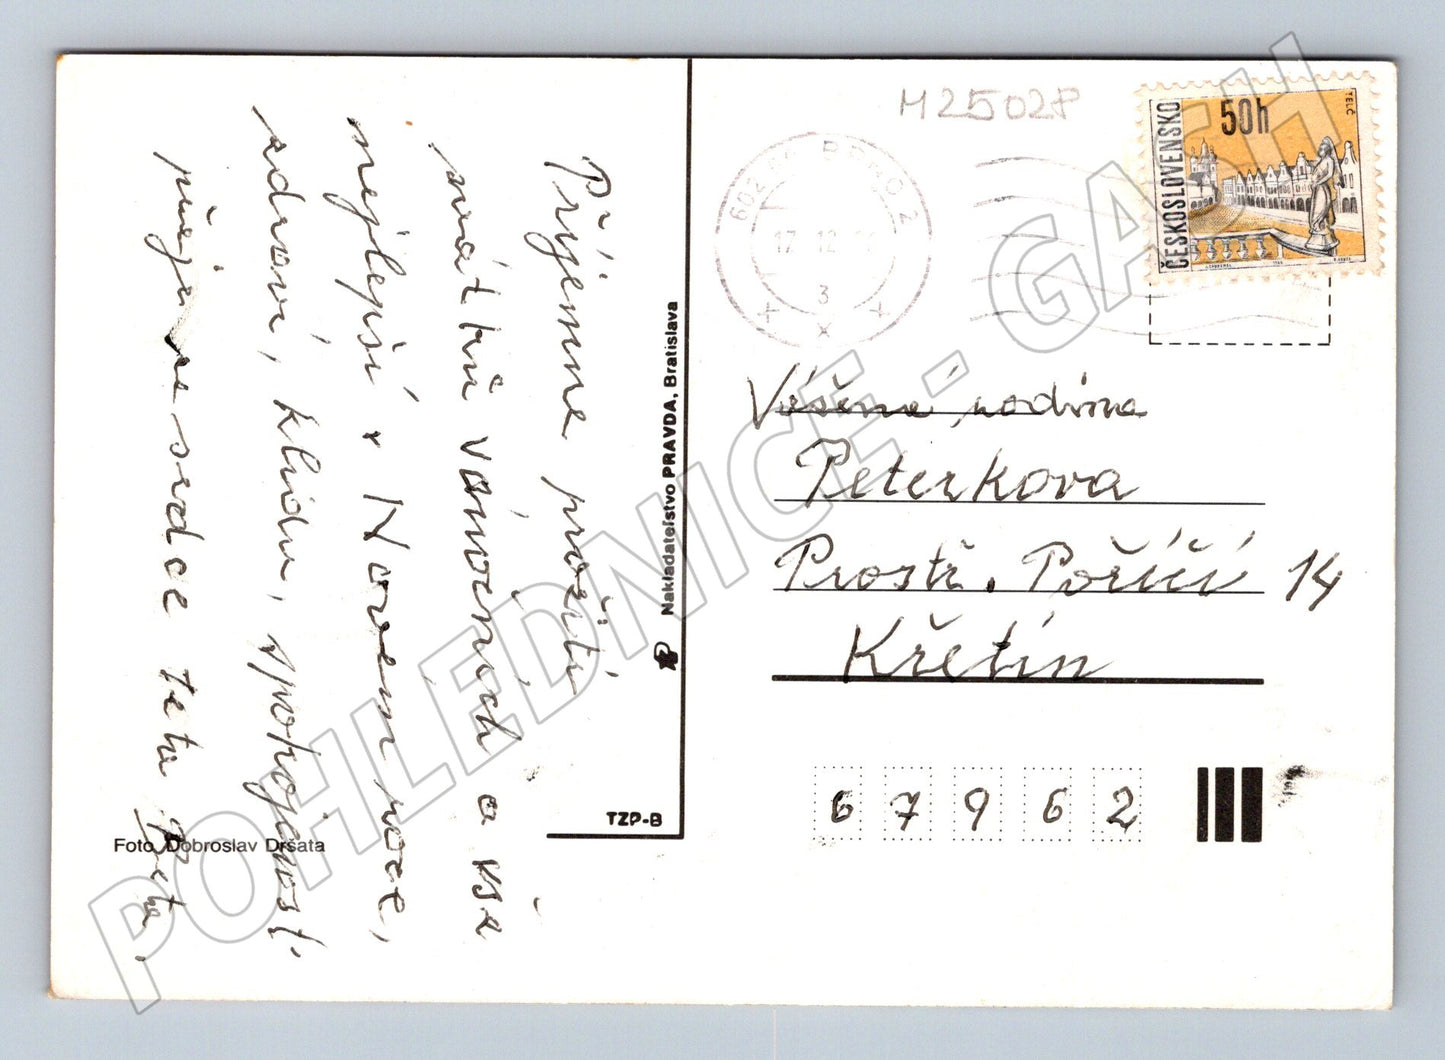 Příjemné prožití
svátků vánočních a vše
nejlepší v Novém roce,
zdraví, klidu, spokojenost
přeje ze srdce teta Běta.
Foto Dobroslav Dršata
Nakladateľstvo PRAVDA, Bratislava
TZP-B
M25028
602 00 BRNO 2
17.12.
3
x
ČESKOSLOVENSKO
50h
TELČ
Vážená rodina
Peterkova
Prostř. Poříčí 14
Křetín
67962
POHLEDNICE - GASH